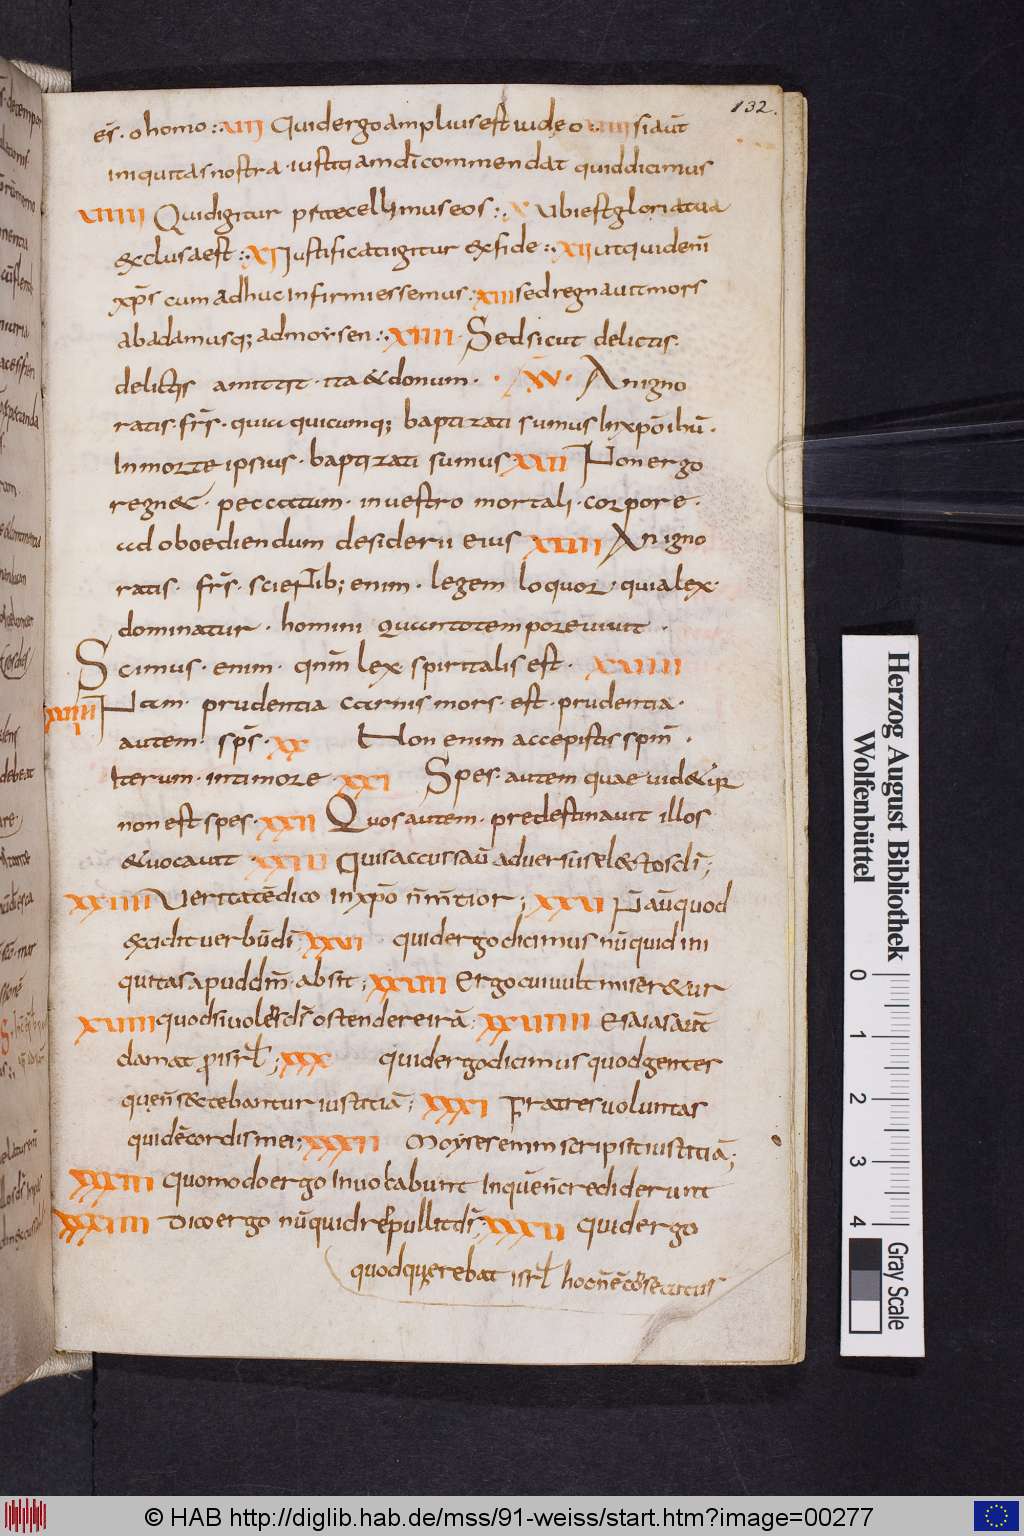 132.
es̄. o homo:. VII Quid ergo amplius est iudeo. VIII si aūt
iniquitas nostra. iustitiam dī commendat quid dicimus
VIIII Quid igitur praecellimus eos:. X Ubi est gloriatua
exclusa est:. XI Iustificati igitur ex fide:. XII ut quid enī
xp̄s cum adhuc infirmi essemus. XIII sed regnauit mors
ab adam usq; ad moysen:. XIIII. Sed sicut delictis.
delictis amittit. ita & donum. XV. An igno
ratis. fr̄s. quia quicumq; baptizati sumus In xp̄o ihū.
In morte ipsius. baptizati sumus XVI Non ergo
regn&. peccatum. in uestro mortali. corpore.
ad oboediendum desiderii eius XVII An igno
ratis. fr̄s. scientib; enim. legem loquor. quia lex.
dominatur. homini quanto tempore uiuit.
Scimus. enim. qn̄m lex. spiritalis est. XVIII
XVIIII Nam. prudentia carnis mors. est. prudentia.
autem. sp̄s. XX Non enim accepistis sp̄m.
Iterum. in timore. XXI Spes. autem quae uid&ur
non est spes. XXII Quos autem. predestinauit illos
& uocauit XXIII Quis accussau aduersus el&tos dī;
XXIIII Ueritatē dico In xp̄o n̄ m̄tior; XXV N̄ aūquod
excidit uerbū dī; XXVI quid ergo dicimus nūquid ini
quitas apud dm̄. absit; XXVII Ergo cui uult miser&ur
XXVIII quod si uolens dī ostendere irā; XXVIIII Esaias aūt
clamat p isrl; XXX quid ergo dicimus quod gentes
quen̄ sectebantur iustitiā; XXXI Fratres uoluntas
quidē cordis mei; XXXII Moyses enim scripsit iustitiā;
XXXIII Quomodo ergo Inuokabunt Inquē n̄ crediderunt
XXXIIII Dico ergo nūquid repullit dī; XXXV Quid ergo
quod querebat isrl hoc n̄ ē cōsecutus
Herzog August Bibliothek
Wolfenbüttel
0 1 2 3 4
Gray Scale
© HAB http://diglib.hab.de/mss/91-weiss/start.htm?image=00277